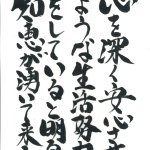 心を深く安心さ
ような生活努力
をしていると明る
知恵が湧いて来